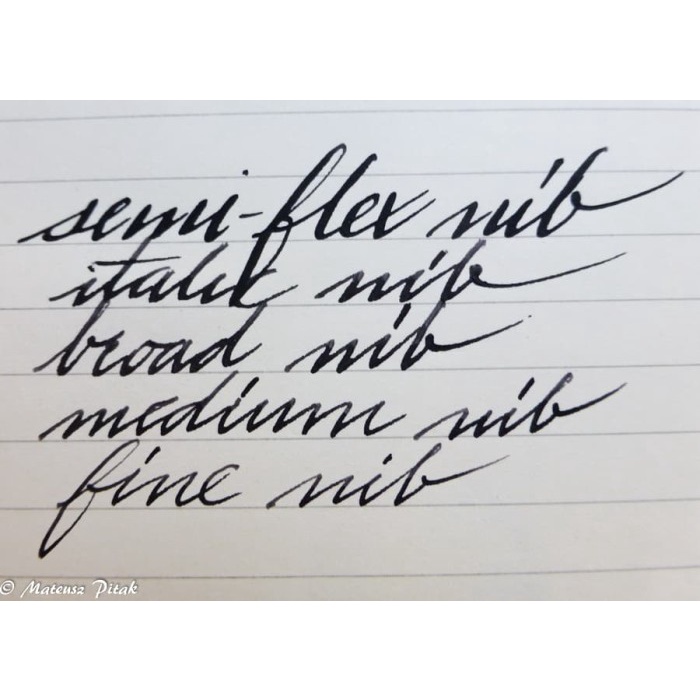 semi-flex nib
italic nib
broad nib
medium nib
fine nib
© Mateusz Pitak